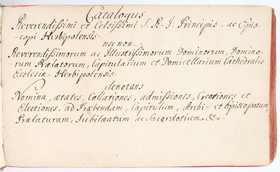 Catalogus
Reverendissimi et Celsissimi S. R. I. Principis, ac Epis-
copi Herbipolensis.
nec non
Reverendissimorum ac Illustrissimorum Dominorum, Domino-
rum Prælatorum, Capitularium et Domicellarium Cathedralis
Ecclesiæ Herbipolensis.
denotans
Nomina, ætates, Collationes, admissiones, Creationes et
Electiones, ad Præbendam, Capitulum, Archi- et Episcopatum
Prælaturam, Jubilæatum ac Sacerdotium &c.